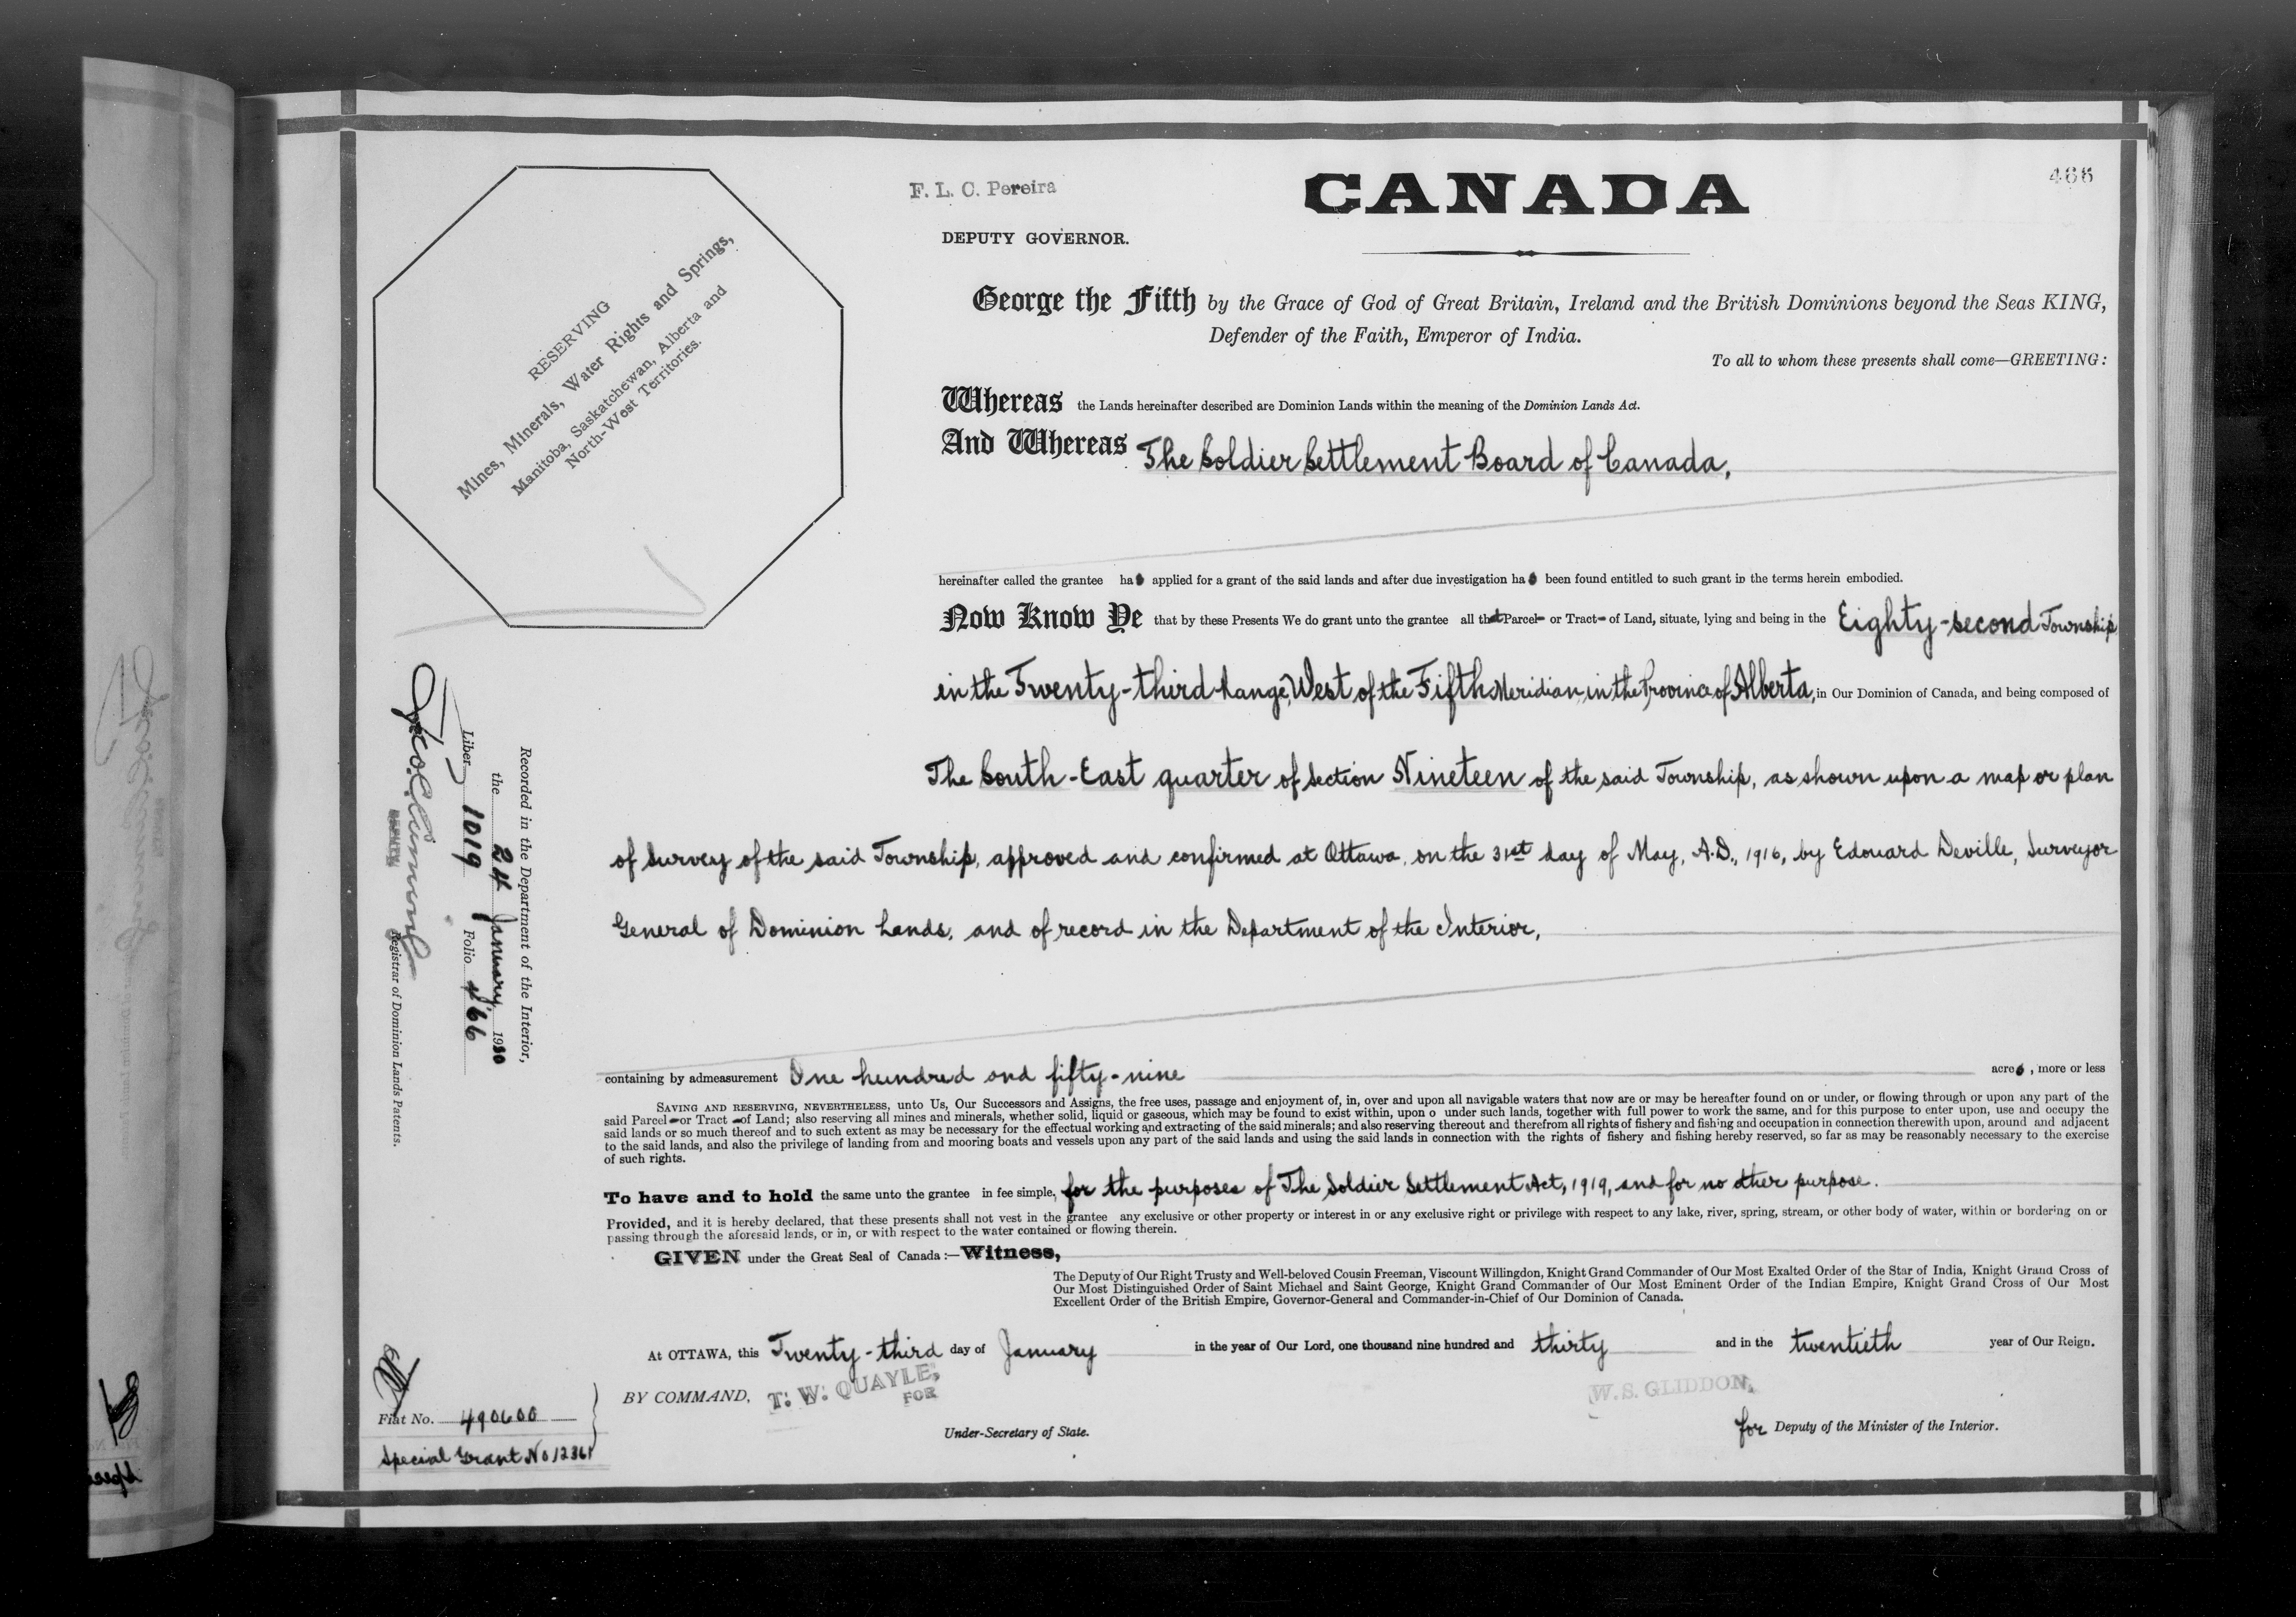 F. L. C. Pereira
CANADA
466
DEPUTY GOVERNOR.
RESERVING
Mines, Minerals, Water Rights and Springs,
Manitoba, Saskatchewan, Alberta and
North-West Territories.
George the Fifth by the Grace of God of Great Britain, Ireland and the British Dominions beyond the Seas KING,
Defender of the Faith, Emperor of India.
To all to whom these presents shall come—GREETING:
Whereas the Lands hereinafter described are Dominion Lands within the meaning of the Dominion Lands Act.
And Whereas The Soldier Settlement Board of Canada,
hereinafter called the grantee has applied for a grant of the said lands and after due investigation has been found entitled to such grant in the terms herein embodied.
Now Know Ye that by these Presents We do grant unto the grantee all that Parcel or Tract of Land, situate, lying and being in the Eighty-second Township
in the Twenty-third Range, West of the Fifth Meridian, in the Province of Alberta, in Our Dominion of Canada, and being composed of
The South-East quarter of Section Nineteen of the said Township, as shown upon a map or plan
of Survey of the said Township, approved and confirmed at Ottawa, on the 31st day of May, A.D., 1916, by Edouard Deville, Surveyor
General of Dominion Lands, and of record in the Department of the Interior,
containing by admeasurement One hundred and fifty-nine acres, more or less
SAVING AND RESERVING, NEVERTHELESS, unto Us, Our Successors and Assigns, the free uses, passage and enjoyment of, in, over and upon all navigable waters that now are or may be hereafter found on or under, or flowing through or upon any part of the
said Parcel or Tract of Land; also reserving all mines and minerals, whether solid, liquid or gaseous, which may be found to exist within, upon o under such lands, together with full power to work the same, and for this purpose to enter upon, use and occupy the
said lands or so much thereof and to such extent as may be necessary for the effectual working and extracting of the said minerals; and also reserving thereout and therefrom all rights of fishery and fishing and occupation in connection therewith upon, around and adjacent
to the said lands, and also the privilege of landing from and mooring boats and vessels upon any part of the said lands and using the said lands in connection with the rights of fishery and fishing hereby reserved, so far as may be reasonably necessary to the exercise
of such rights.
To have and to hold the same unto the grantee in fee simple, for the purposes of The Soldier Settlement Act, 1919, and for no other purpose.
Provided, and it is hereby declared, that these presents shall not vest in the grantee any exclusive or other property or interest in or any exclusive right or privilege with respect to any lake, river, spring, stream, or other body of water, within or bordering on or
passing through the aforesaid lands, or in, or with respect to the water contained or flowing therein.
GIVEN under the Great Seal of Canada:—Witness,
The Deputy of Our Right Trusty and Well-beloved Cousin Freeman, Viscount Willingdon, Knight Grand Commander of Our Most Exalted Order of the Star of India, Knight Grand Cross of
Our Most Distinguished Order of Saint Michael and Saint George, Knight Grand Commander of Our Most Eminent Order of the Indian Empire, Knight Grand Cross of Our Most
Excellent Order of the British Empire, Governor-General and Commander-in-Chief of Our Dominion of Canada.
At OTTAWA, this Twenty-third day of January in the year of Our Lord, one thousand nine hundred and thirty and in the twentieth year of Our Reign.
BY COMMAND, T. W. QUAYLE,
FOR
W. S. GLIDDON,
Under-Secretary of State.
for Deputy of the Minister of the Interior.
Recorded in the Department of the Interior,
the 24 January 1930
Liber 1019 Folio 466
DEPUTY
Registrar of Dominion Lands Patents.
Fiat No. 490600
Special Grant No 12361